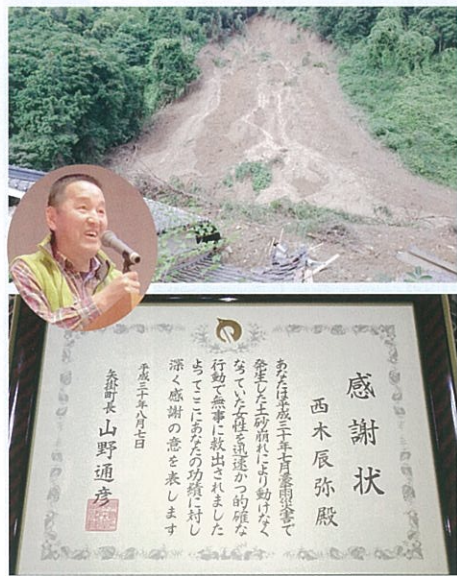 感謝状
西木辰弥殿
あなたは平成三十年七月豪雨災害で
発生した土砂崩れにより動けなく
なっていた女性を迅速かつ的確な
行動で無事に救出されました
よってここにあなたの功績に対し
深く感謝の意を表します
平成三十年八月七日
矢掛町長 山野通彦